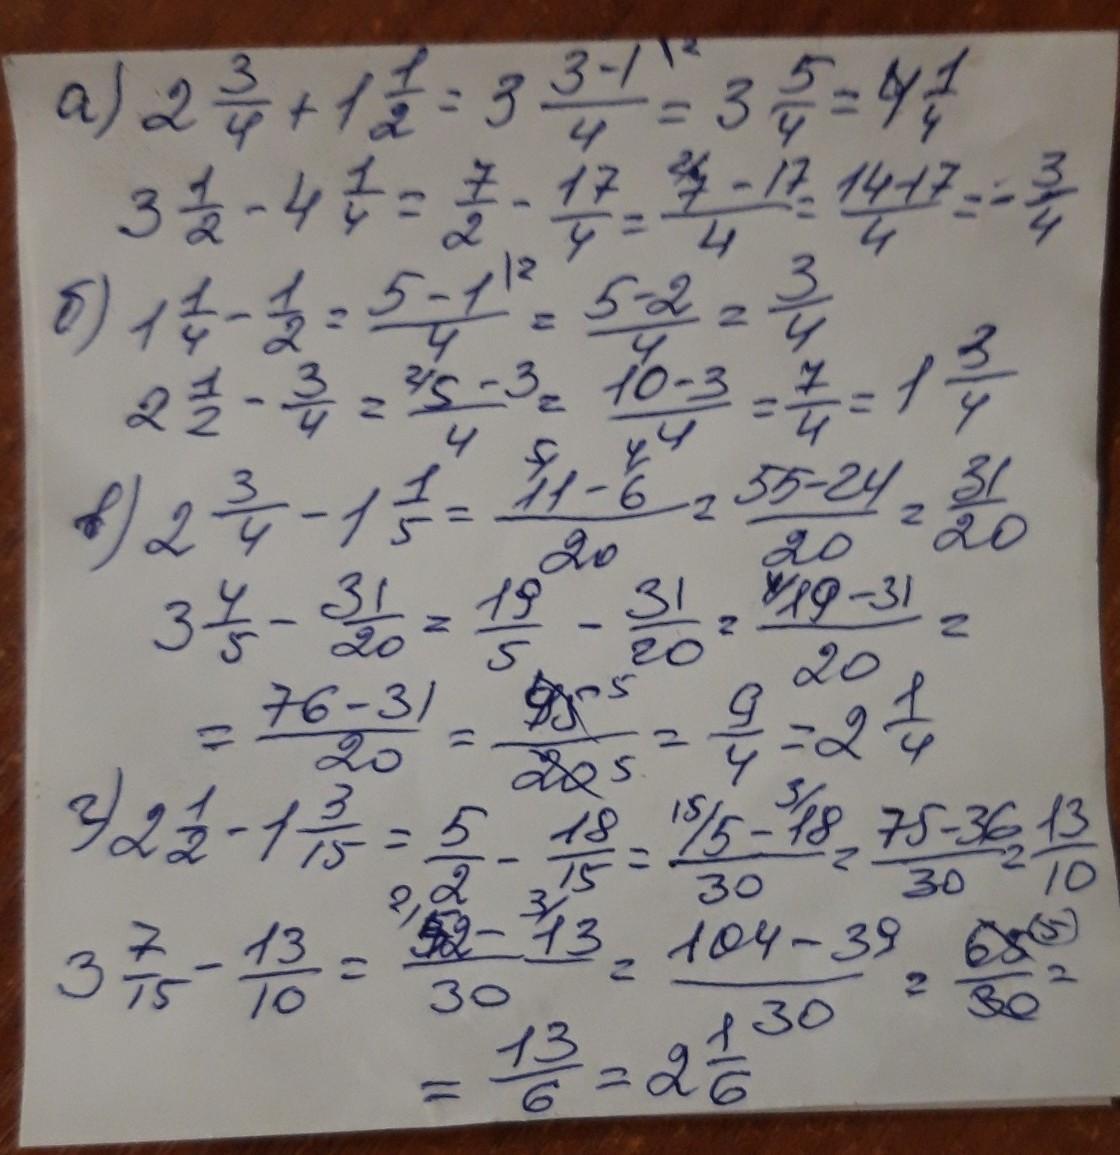 а) 2 3/4 + 1 1/2 = 3 (3-1\2)/4 = 3 5/4 = 4 1/4
3 1/2 - 4 1/4 = 7/2 - 17/4 = (2/7 - 17)/4 = (14-17)/4 = - 3/4
б) 1 1/4 - 1/2 = (5-1\2)/4 = (5-2)/4 = 3/4
2 1/2 - 3/4 = (2/5 - 3)/4 = (10-3)/4 = 7/4 = 1 3/4
в) 2 3/4 - 1 1/5 = (5/11 - 4/6)/20 = (55-24)/20 = 31/20
3 4/5 - 31/20 = 19/5 - 31/20 = (4/19-31)/20 =
= (76-31)/20 = 45 5/20 5 = 9/4 = 2 1/4
г) 2 1/2 - 1 3/15 = 5/2 - 18/15 = (15/5 - 3/18)/30 = (75-36)/30 = 13/10
3 7/15 - 13/10 = (2/52 - 3/13)/30 = (104-39)/30 = 65(5)/30 =
= 13/6 = 2 1/6